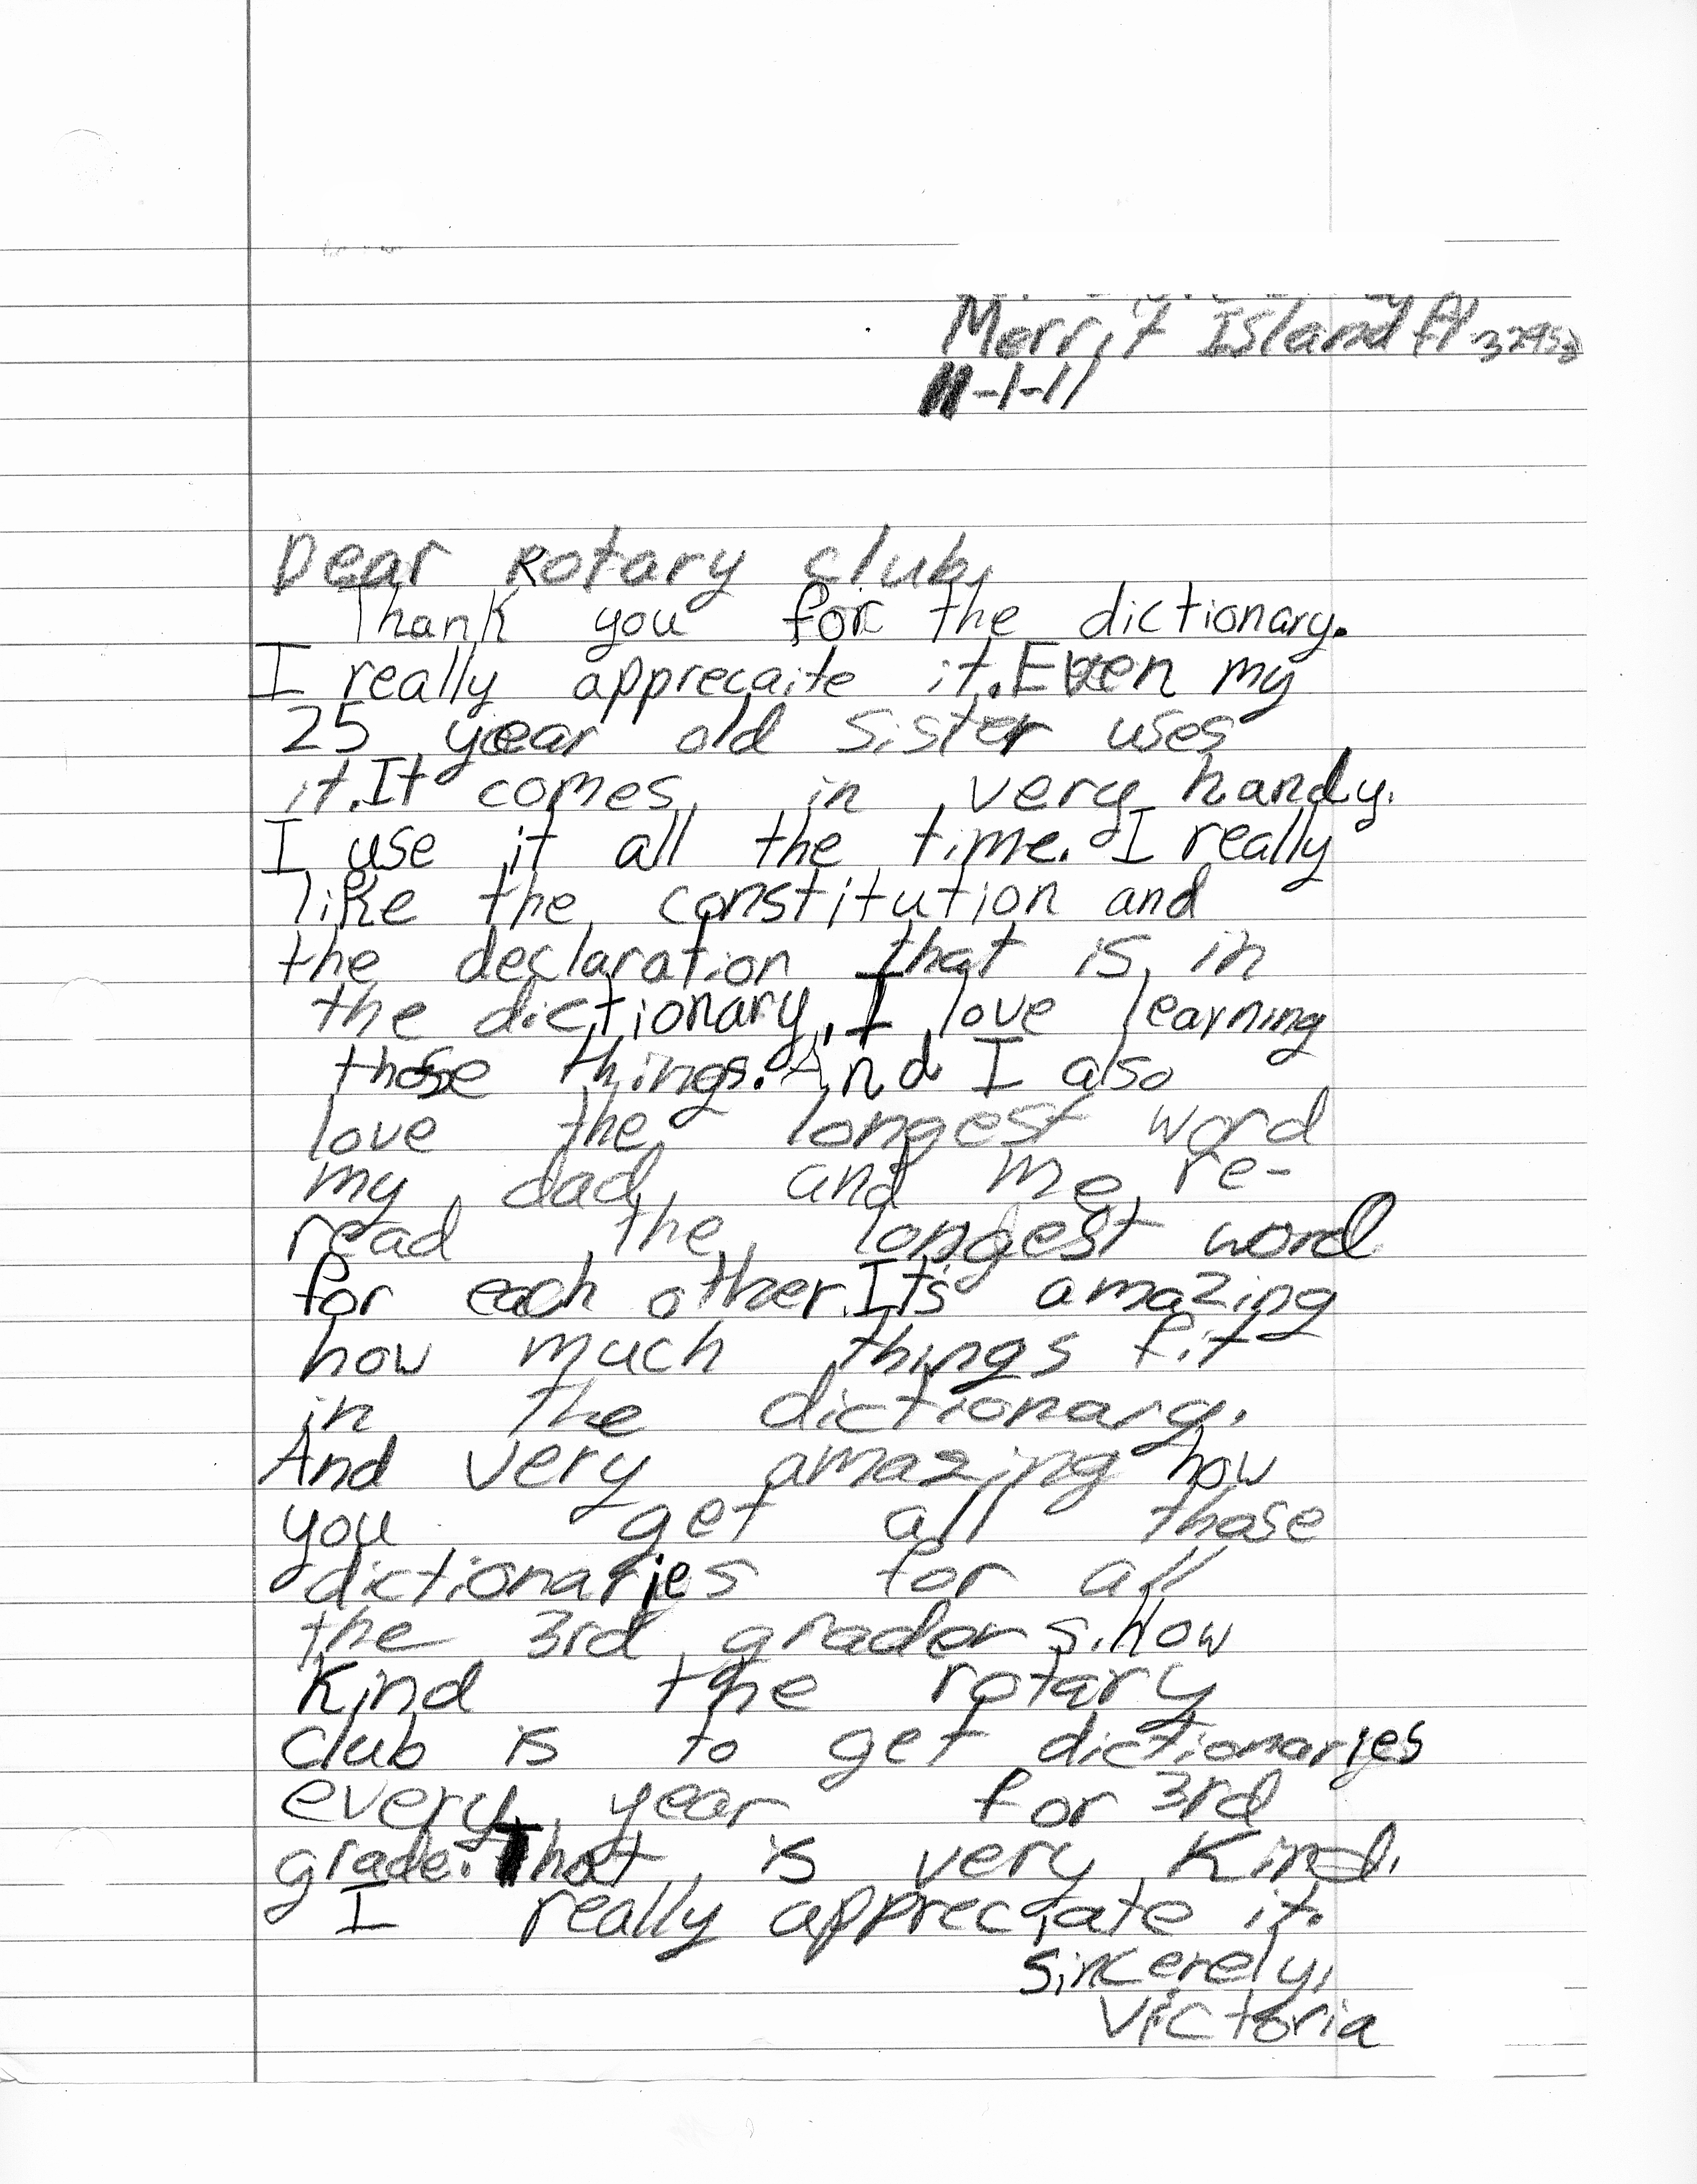 Merrit Island Fl 32953
11-1-11
Dear Rotary club,
Thank you for the dictionary.
I really apprecaite it. Even my
25 year old sister uses
it. It comes in very handy.
I use it all the time. I really
like the constitution and
the declaration that is in
the dictionary. I love learning
those things. And I also
love the longest word
my dad and me re-
read the longest word
for each other. It's amazing
how much things fit
in the dictionary.
And very amazing how
you get all those
dictionaries for all
the 3rd graders. How
kind the rotary
club is to get dictionaries
every year for 3rd
grade. That is very kind.
I really appreciate it.
Sincerely,
Victoria